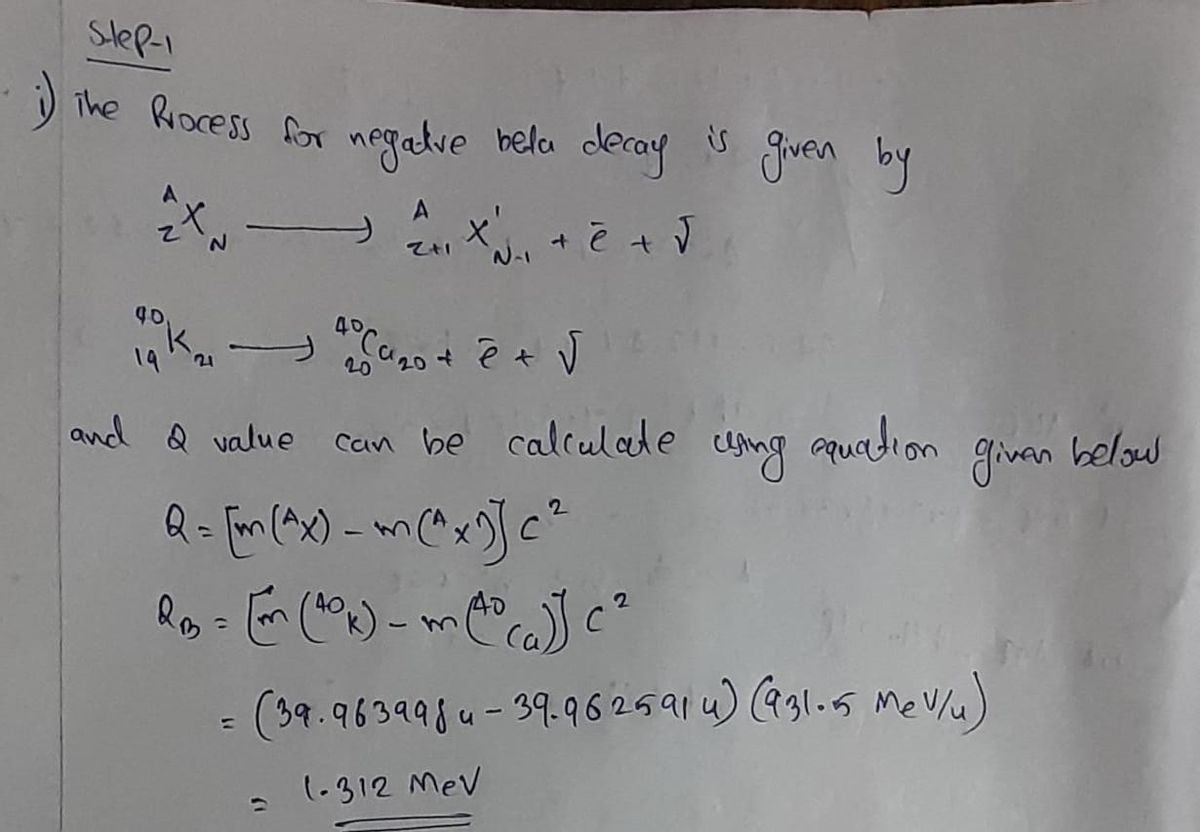 Step-1
i) The Process for negative beta decay is given by
ᴬ_Z X_N ⟶ ᴬ_{Z+1} X'_{N-1} + ē + ν̄
⁴⁰₁₉K₂₁ ⟶ ⁴⁰₂₀Ca₂₀ + ē + ν̄
and Q value can be calculate using equation given below
Q = [m(ᴬX) - m(ᴬX')] C²
Q_B = [m(⁴⁰K) - m(⁴⁰Ca)] C²
= (39.963998u - 39.962591u) (931.5 MeV/u)
= 1.312 MeV